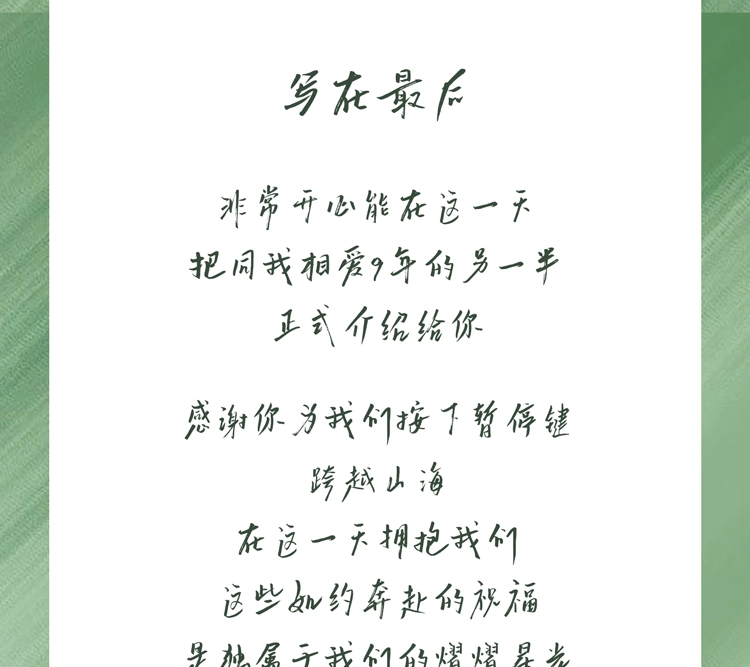 写在最后
非常开心能在这一天
把同我相爱9年的另一半
正式介绍给你
感谢你为我们按下暂停键
跨越山海
在这一天拥抱我们
这些如约奔赴的祝福
是独属于我们的熠熠星光